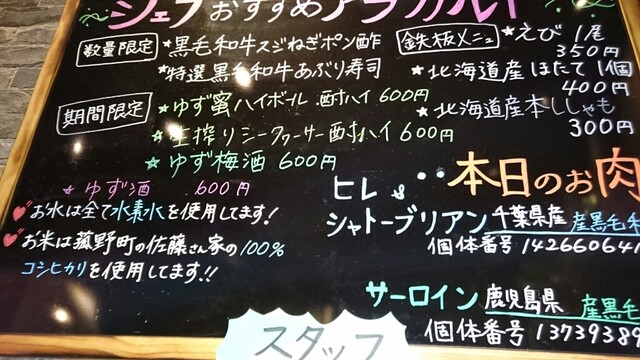 シェフおすすめアラカルト
数量限定
★黒毛和牛スジねぎポン酢
★特選黒毛和牛あぶり寿司
期間限定
★ゆず蜜ハイボール .酎ハイ 600円
★生搾りシークァーサー酎ハイ 600円
★ゆず梅酒 600円
★ゆず酒 600円
お水は全て水素水を使用してます!
お米は菰野町の佐藤さん家の100%
コシヒカリを使用してます!!
鉄板メニュー
★えび 1尾
350円
★北海道産 ほたて 1個
400円
★北海道産本ししゃも
300円
本日のお肉
ヒレ &
シャトーブリアン 千葉県産 産黒毛和
個体番号 142660641
サーロイン 鹿児島県 産黒毛
個体番号 13739389
スタッフ